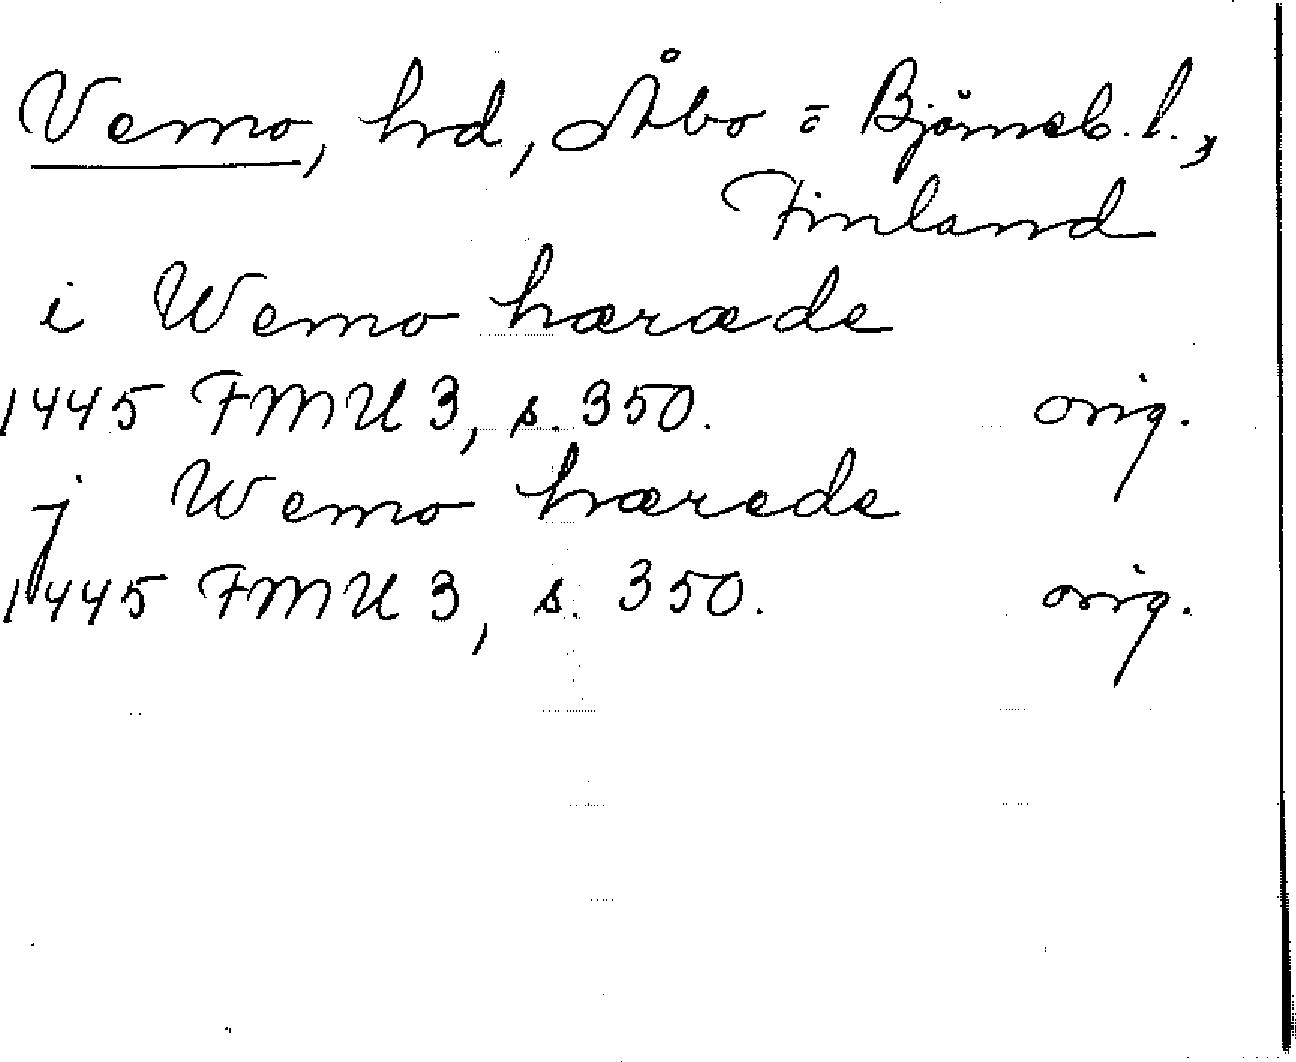 Vemo, hrd, Åbo = Björneb. l.,
Finland
i Wemo hæræde
1445 FMU 3, s. 350. orig.
j Wemo hærede
1445 FMU 3, s. 350. orig.